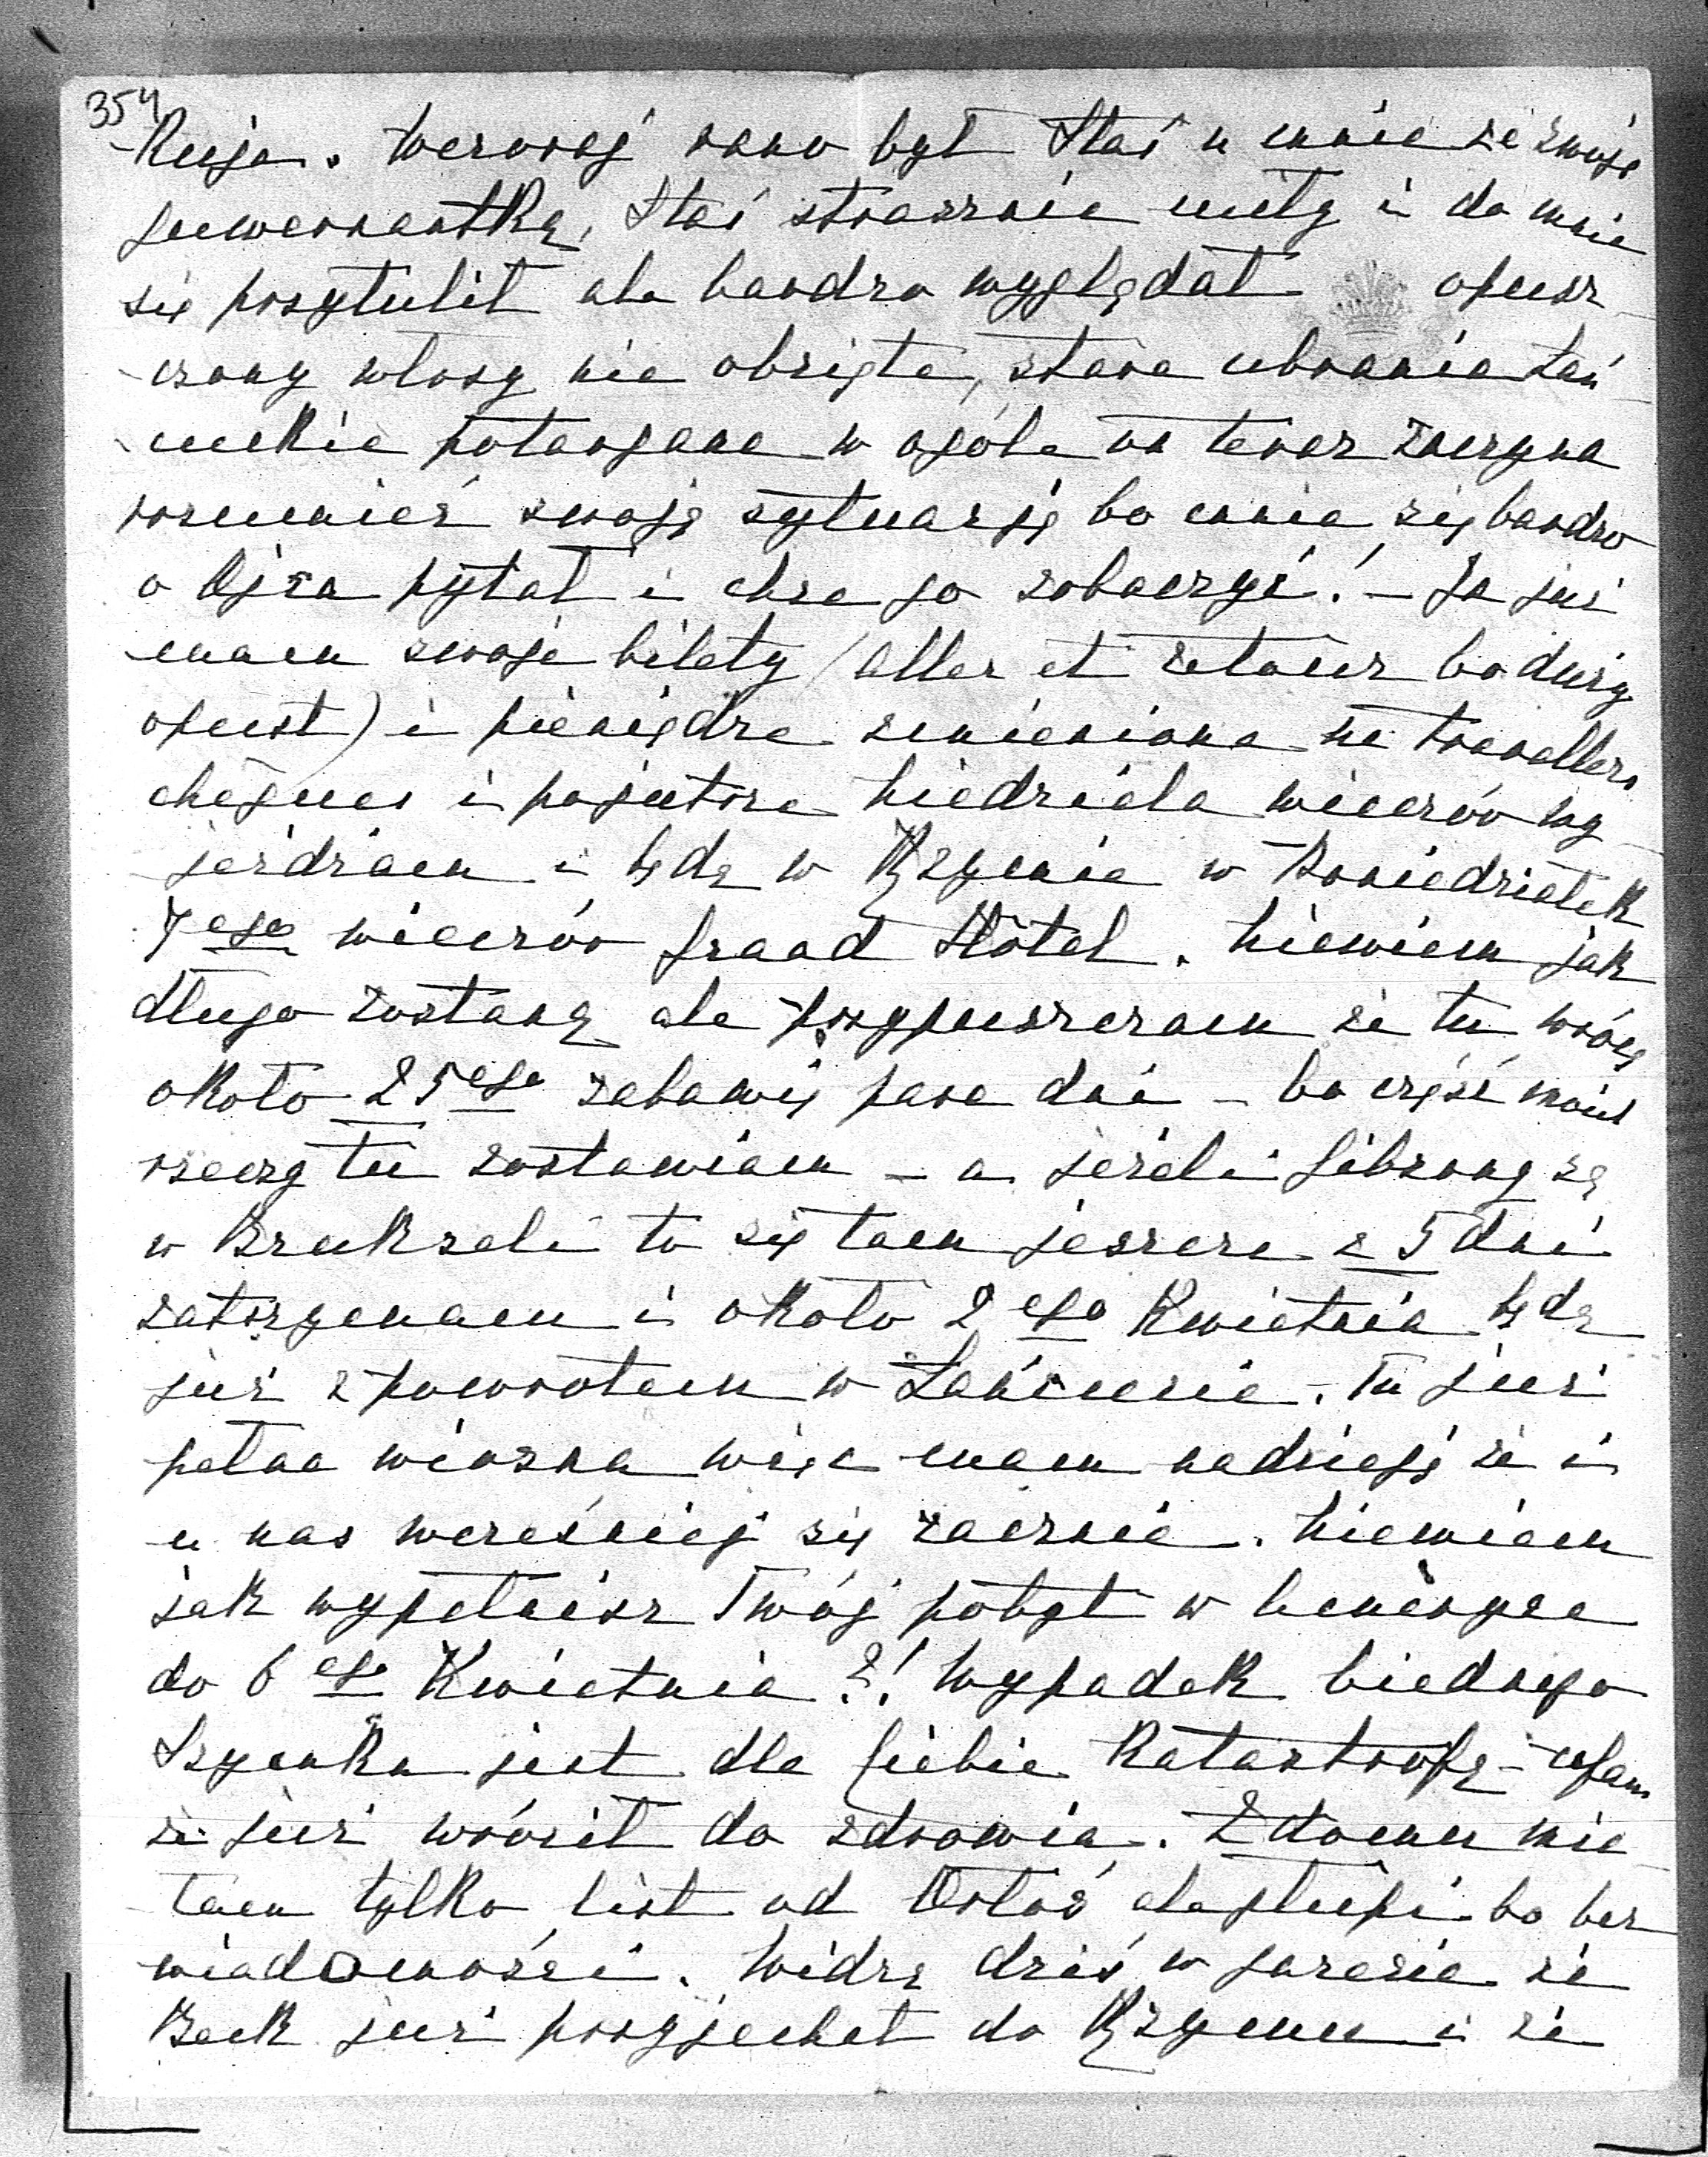 354
-kuja. Wczoraj rano był Staś u mnie ze swoją
guwernantką, Staś strasznie miły i do mnie
się przytulił ale bardzo wyglądał opusz-
-czony włosy nie obcięte, stare ubrania łań-
-cuckie potargane w ogóle on teraz zaczyna
rozumieć swoją sytuację bo mnie się bardzo
o Ojca pytał i chce go zobaczyć! – Ja już
mam swoje bilety (aller et retour bo duży
opust) i pieniądze zmienione na travellers
chèques i pojutrze Niedziela wieczór wy-
-jeżdżam i będę w Rzymie w Poniedziałek
7ego wieczór Grand Hôtel. Niewiem jak
długo zostanę ale przypuszczam że tu wrócę
około 25ego zabawię parę dni – bo część moich
rzeczy tu zostawiam – a jeżeli Gibsony są
w Brukseli to się tam jeszcze z 5 dni
zatrzymam i około 2ego Kwietnia będę
już z powrotem w Łańcucie. Tu już
pełna wiosna więc mam nadzieję że i
u nas wcześniej się zacznie. Niewiem
jak wypełnisz Twój pobyt w
do 6ego Kwietnia?! Wypadek biednego
Szymka jest dla Ciebie Katastrofą – ufam
że już wrócił do zdrowia. Z domu mia-
-łem tylko list od ale głupi bo bez
wiadomości. Widzę dziś w gazecie że
Beck już przyjechał do Rzymu i że